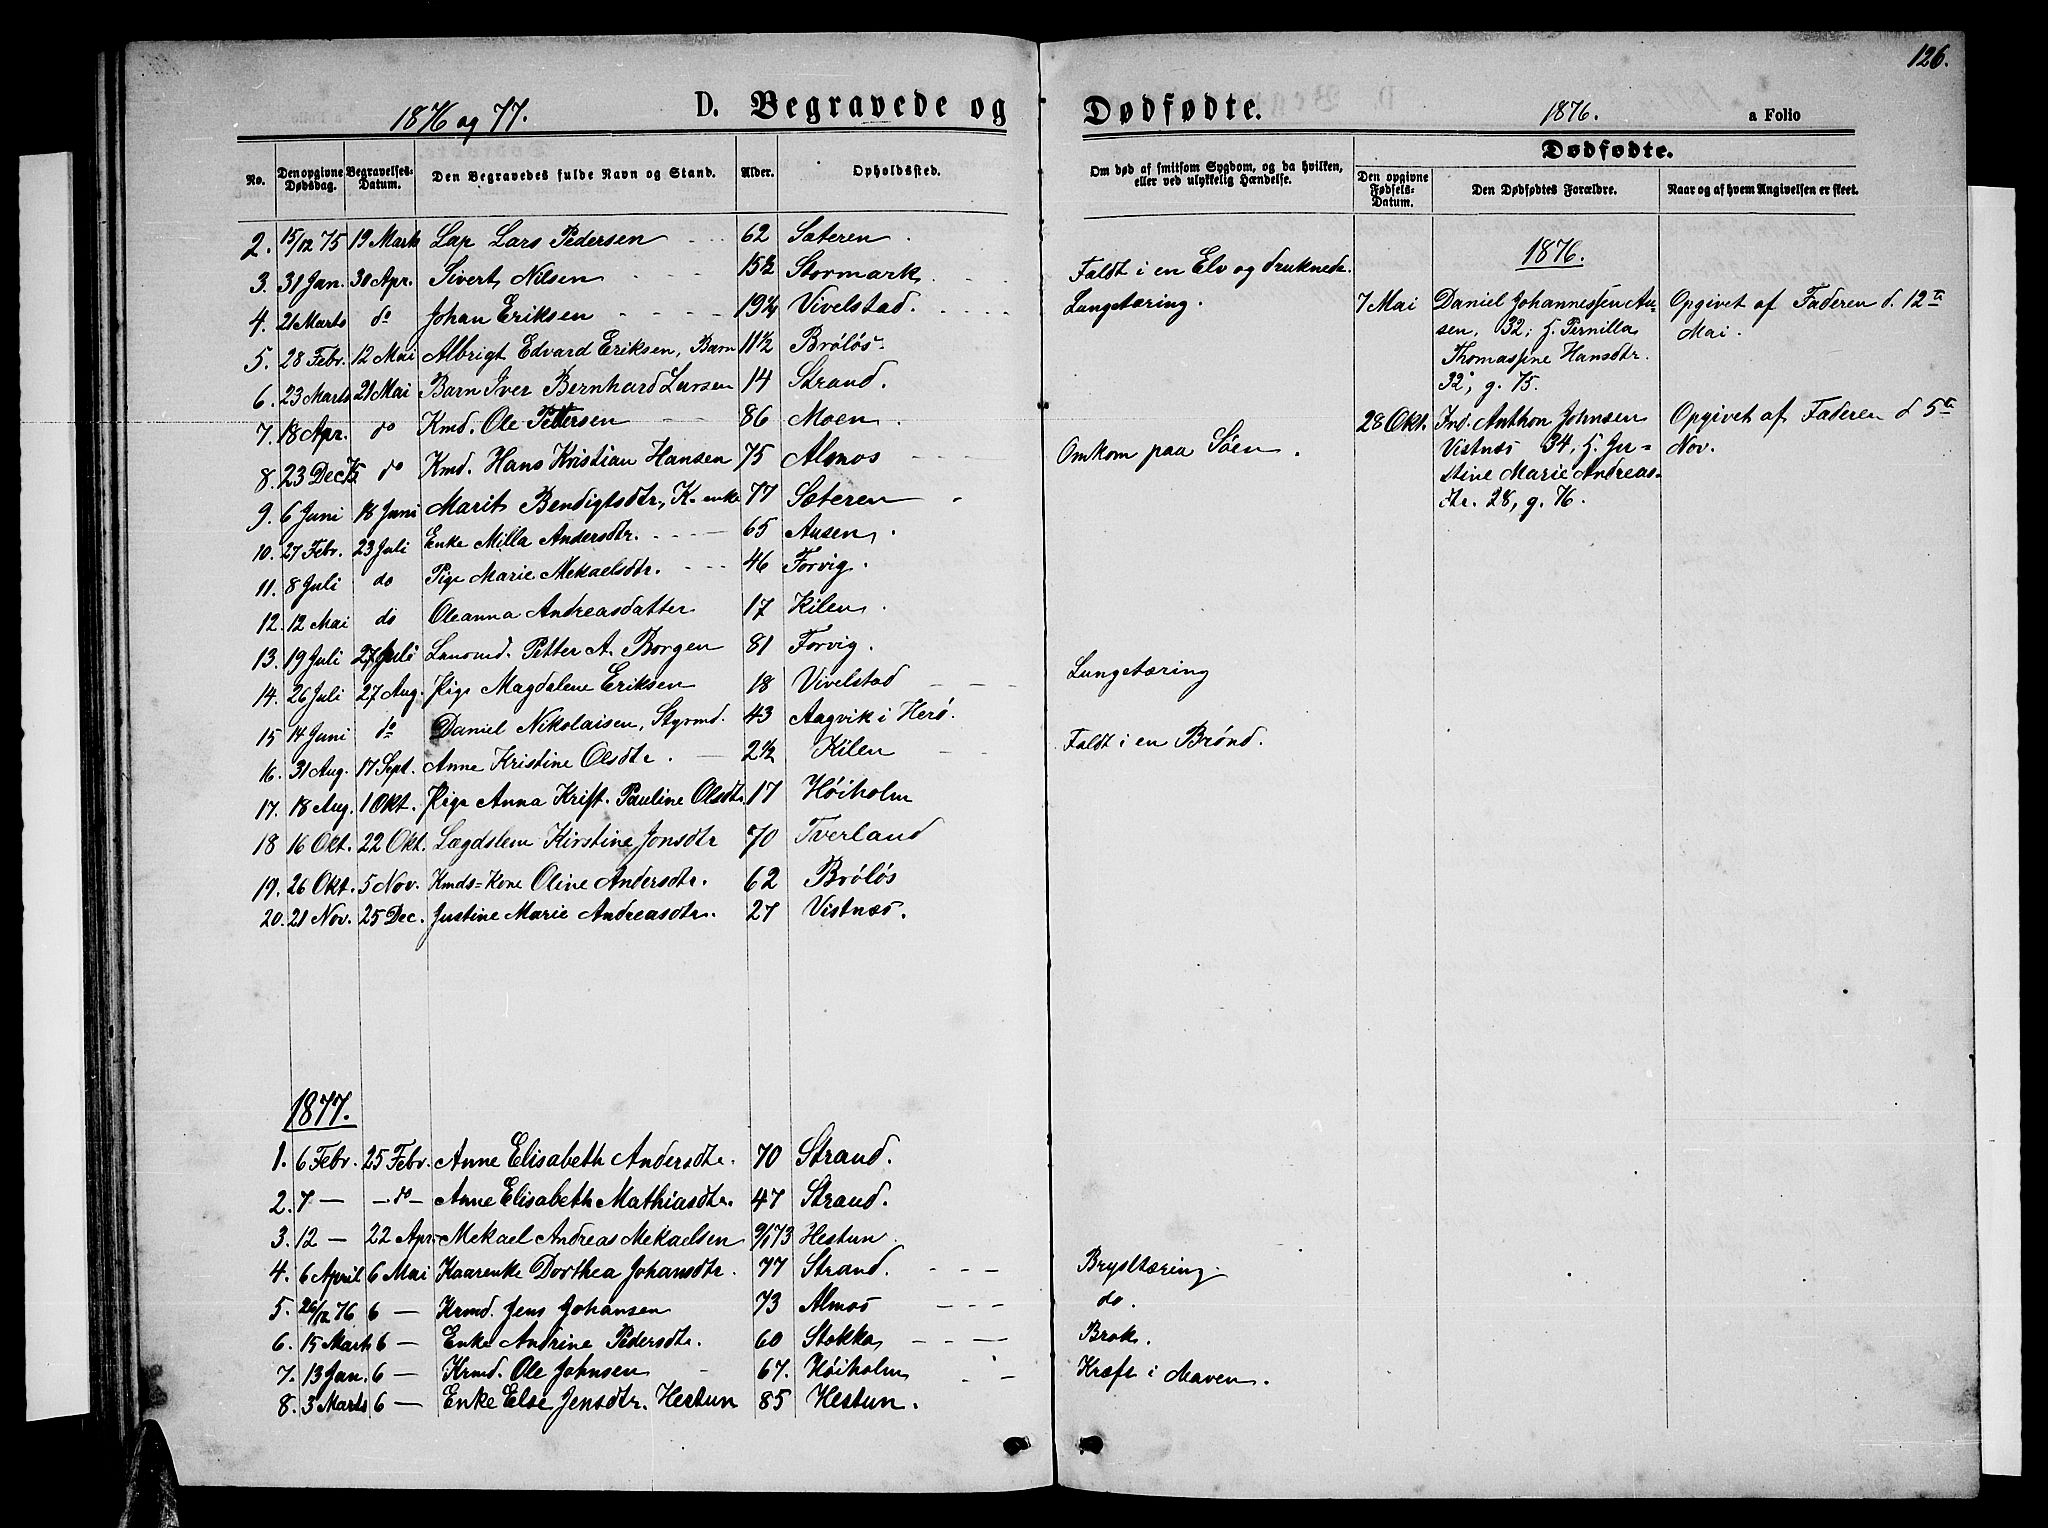 126.
1876 og 77. D. Begravede og Dødfødte. 1876. a Folio
No. Den opgivne Dødsdag. Begravelses-Datum. Den Begravedes fulde Navn og Stand. Alder. Opholdssted.
2. 15/12 75 19 Marts Lap Lars Pedersen 62 Sæteren.
3. 31 Jan. 30 Apr. Sivert Nilsen 15½ Stormark
4. 21 Marts do Johan Eriksen 19¼ Vivelstad.
5. 28 Febr. 12 Mai Albrigt Edvard Eriksen, Barn 11½ Bröløs
6. 23 Marts 21 Mai Barn Iver Bernhard Larsen 14 Strand.
7. 18 Apr. do Kmd. Ole Pettersen 86 Moen
8. 23 Dec 75 do Kmd. Hans Kristian Hansen 75 Almos
9. 6 Juni 18 Juni Marit Bendigtsdtr, K. enke 77 Sæteren
10. 27 Febr. 23 Juli Enke Milla Andersdtr. 65 Ausen
11. 8 Juli do Pige Marie Mekaelsdtr. 46 Forvig.
12. 12 Mai do Oleanna Andreasdatter 17 Kilen
13. 19 Juli 27 Juli Lensmd. Petter A. Borgen 81 Forvig.
14. 26 Juli 27 Aug. Pige Magdalene Eriksen 18 Vivelstad
15 14 Juni do Daniel Nikolaisen, Styrmd. 43 Aagvik i Herö.
16. 31 Aug. 17 Sept. Anne Kristine Olsdtr. 2½ Kilen
17. 18 Aug. 1 Okt. Pige Anna Krist. Pauline Olsdtr 17 Höiholm
18 16 Okt. 22 Okt. Lægdslem Kirstine Jonsdtr 70 Tverland
19. 26 Okt. 5 Nov. Kmds=Kone Oline Andersdtr. 62 Bröløs
20. 21 Nov. 25 Dec. Justine Marie Andreasdtr. 27 Vistnæs.
1877.
1. 6 Febr. 25 Febr. Anne Elisabeth Andersdtr. 70 Strand.
2. 7 — — do — Anne Elisabeth Mathiasdtr. 47 Strand.
3. 12 — 22 Apr. Mekael Andreas Mekaelsen 9/1 73 Hestun
4. 6 April 6 Mai Kaarenke Dorthea Johansdtr. 77 Strand.
5. 26/12 76 6 — Krmd. Jens Johansen 73 Almos
6. 15 Marts 6 — Enke Andrine Pedersdtr. 60 Stokka
7. 13 Jan. 6 — Krmd. Ole Johnsen 67. Höiholm
8. 3 Marts 6 — Enke Else Jensdtr. Hestun 85 Hestun.
Om død af smitsom Sygdom, og da hvilken, eller ved ulykkelig Hændelse.
Dødfødte.
Den opgivne Fødsels-Datum. Den Dødfødtes Forældre. Naar og af hvem Angivelsen er skeet.
Faldt i en Elv og druknede.
Lungetæring.
Omkom paa Söen.
Lungetæring
Faldt i en Brönd.
Brysttæring.
do.
Brok.
Kræft i Maven.
1876.
7 Mai Daniel Johannessen Au- Opgivet af Faderen d. 12te
sen, 32, h. Pernilla Mai.
Thomassine Hansdtr.
32, g. 75.
28 Okt. Ind. Anthon Johnsen Opgivet af Faderen d 5te
Vistnæs 34, h. Ju= Nov.
stine Marie Andreas-
dtr. 28, g. 76.